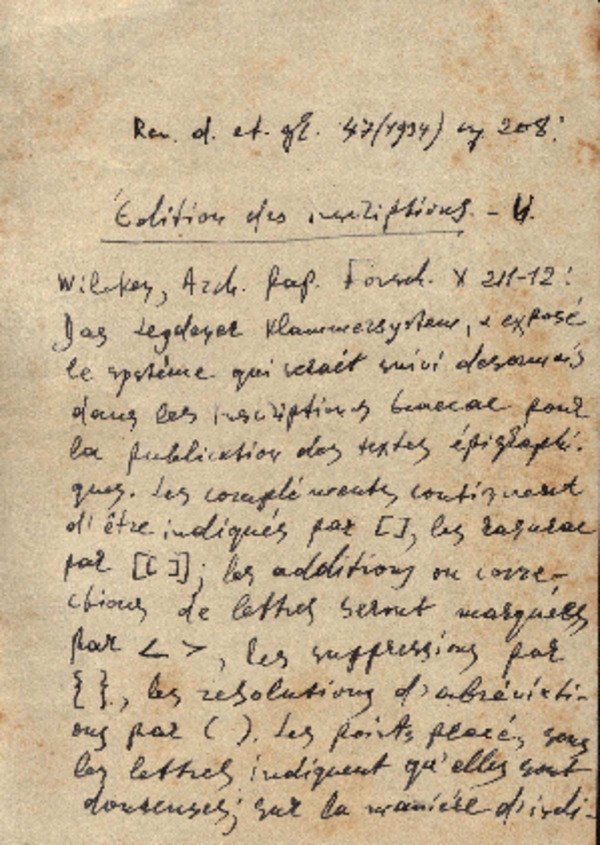 Rev. d. et. gr. 47(1934) 208:
Édition des inscriptions. - U.
Wilcken, Arch. Pap. Forsch. X 211-12:
Das Leydener Klammersystem, a exposé
le système qui serait suivi desormais
dans les inscriptions pour
la publication des textes épigraphi-
ques. Les compléments continuent
d'être indiqués par [], les rasurae
par [[ ]]; les additions ou corre-
ctions de lettres seront marquées
par < >, les suppressions par
{ }, les resolutions d'abréviati-
ons par ( ). Les points placés sous
les lettres indiquent qu'elles sont
douteuses; sur la manière d'indi-